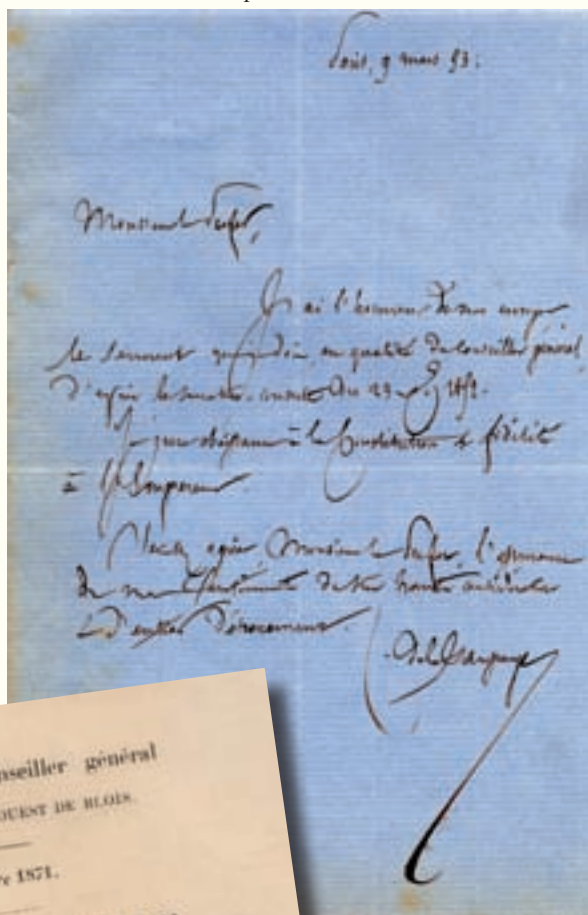 Paris, 9 mars 53.
Monsieur le Préfet,
J'ai l'honneur de vous envoyer
le serment en qualité de Conseiller général,
d'après le sénatus-consulte du 1852.
Je jure obéissance à la Constitution & fidélité
à l'Empereur.
Veuillez agréer, Monsieur le Préfet, l'assurance
de mes sentiments de très haute considération
& d'entier dévouement.
nseiller général
OUEST DE BLOIS.
re 1871.